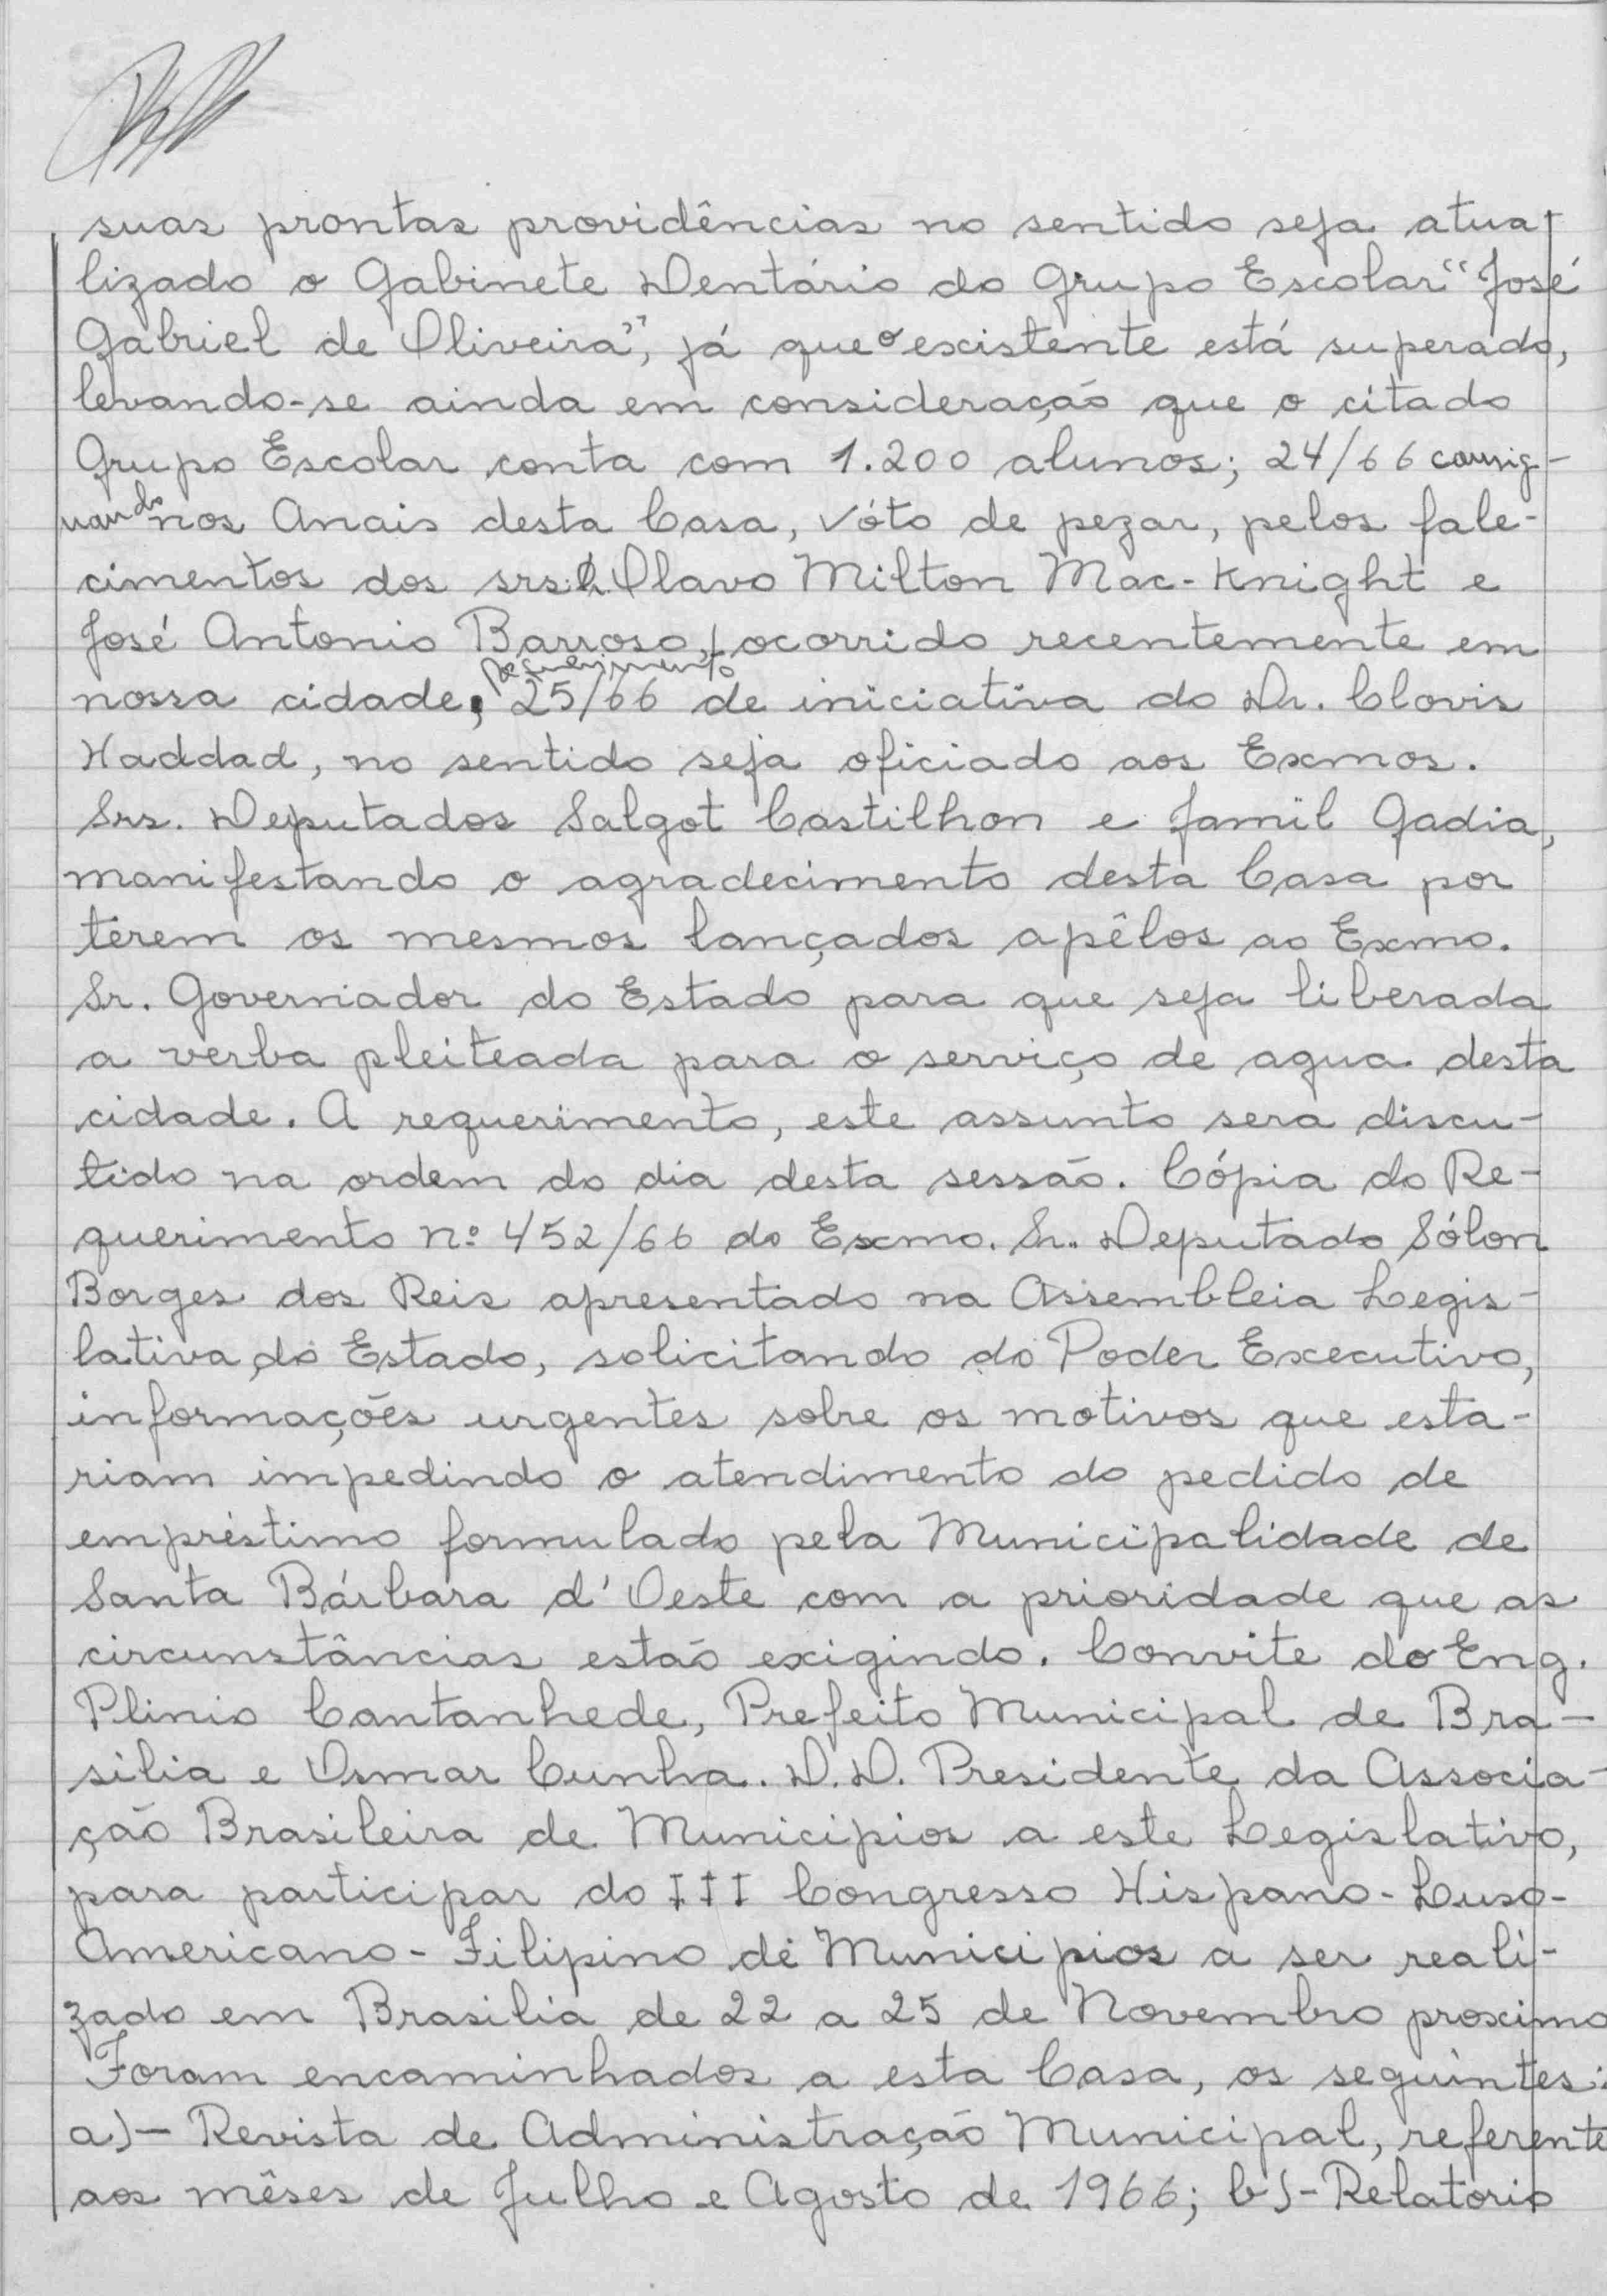 suas prontas providências no sentido seja atua
lizado o Gabinete Dentário do Grupo Escolar "José
Gabriel de Oliveira", já que o existente está superado,
levando-se ainda em consideração que o citado
Grupo Escolar conta com 1.200 alunos; 24/66 consig-
nando nos Anais desta Casa, vóto de pezar, pelos fale-
cimentos dos srs. Olavo Milton Mac-Knight e
José Antonio Barroso, ocorrido recentemente em
nossa cidade, requerimento 25/66 de iniciativa do Dr. Clovis
Haddad, no sentido seja oficiado aos Exmos.
Srs. Deputados Salgot Castilhon e Jamil Gadia,
manifestando o agradecimento desta Casa por
terem os mesmos lançados apêlos ao Exmo.
Sr. Governador do Estado para que seja liberada
a verba pleiteada para o serviço de agua desta
cidade. A requerimento, este assunto sera discu-
tido na ordem do dia desta sessão. Cópia do Re-
querimento nº 452/66 do Exmo. Sr. Deputado Sólon
Borges dos Reis apresentado na Assembleia Legis-
lativa do Estado, solicitando do Poder Executivo,
informações urgentes sobre os motivos que esta-
riam impedindo o atendimento do pedido de
empréstimo formulado pela Municipalidade de
Santa Bárbara d'Oeste com a prioridade que as
circunstâncias estão exigindo. Convite do Eng.
Plinio Cantanhede, Prefeito Municipal de Bra-
silia e Osmar Cunha. D.D. Presidente da Associa-
ção Brasileira de Municipios a este Legislativo,
para participar do III Congresso Hispano-Luso-
Americano-Filipino de Municipios a ser reali-
zado em Brasilia de 22 a 25 de Novembro proximo
Foram encaminhados a esta Casa, os seguintes:
a)- Revista de Administração Municipal, referente
aos mêses de Julho e Agosto de 1966; b)- Relatorio